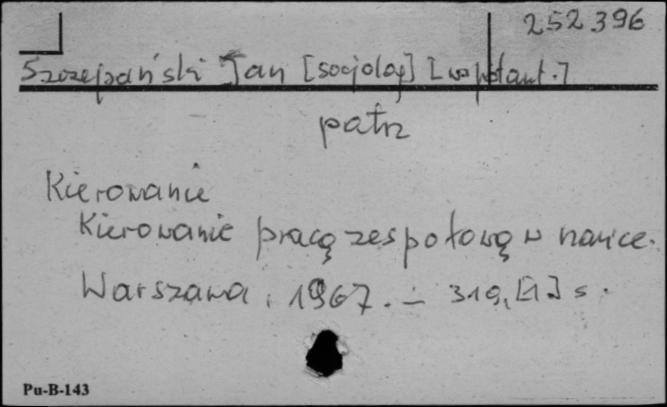 252396
Szczepański Jan [socjolog] [współaut.]
patrz
Kierowanie
Kierowanie pracą zespołową w nauce.
Warszawa, 1967. – 319, [1] s.
Pu-B-143